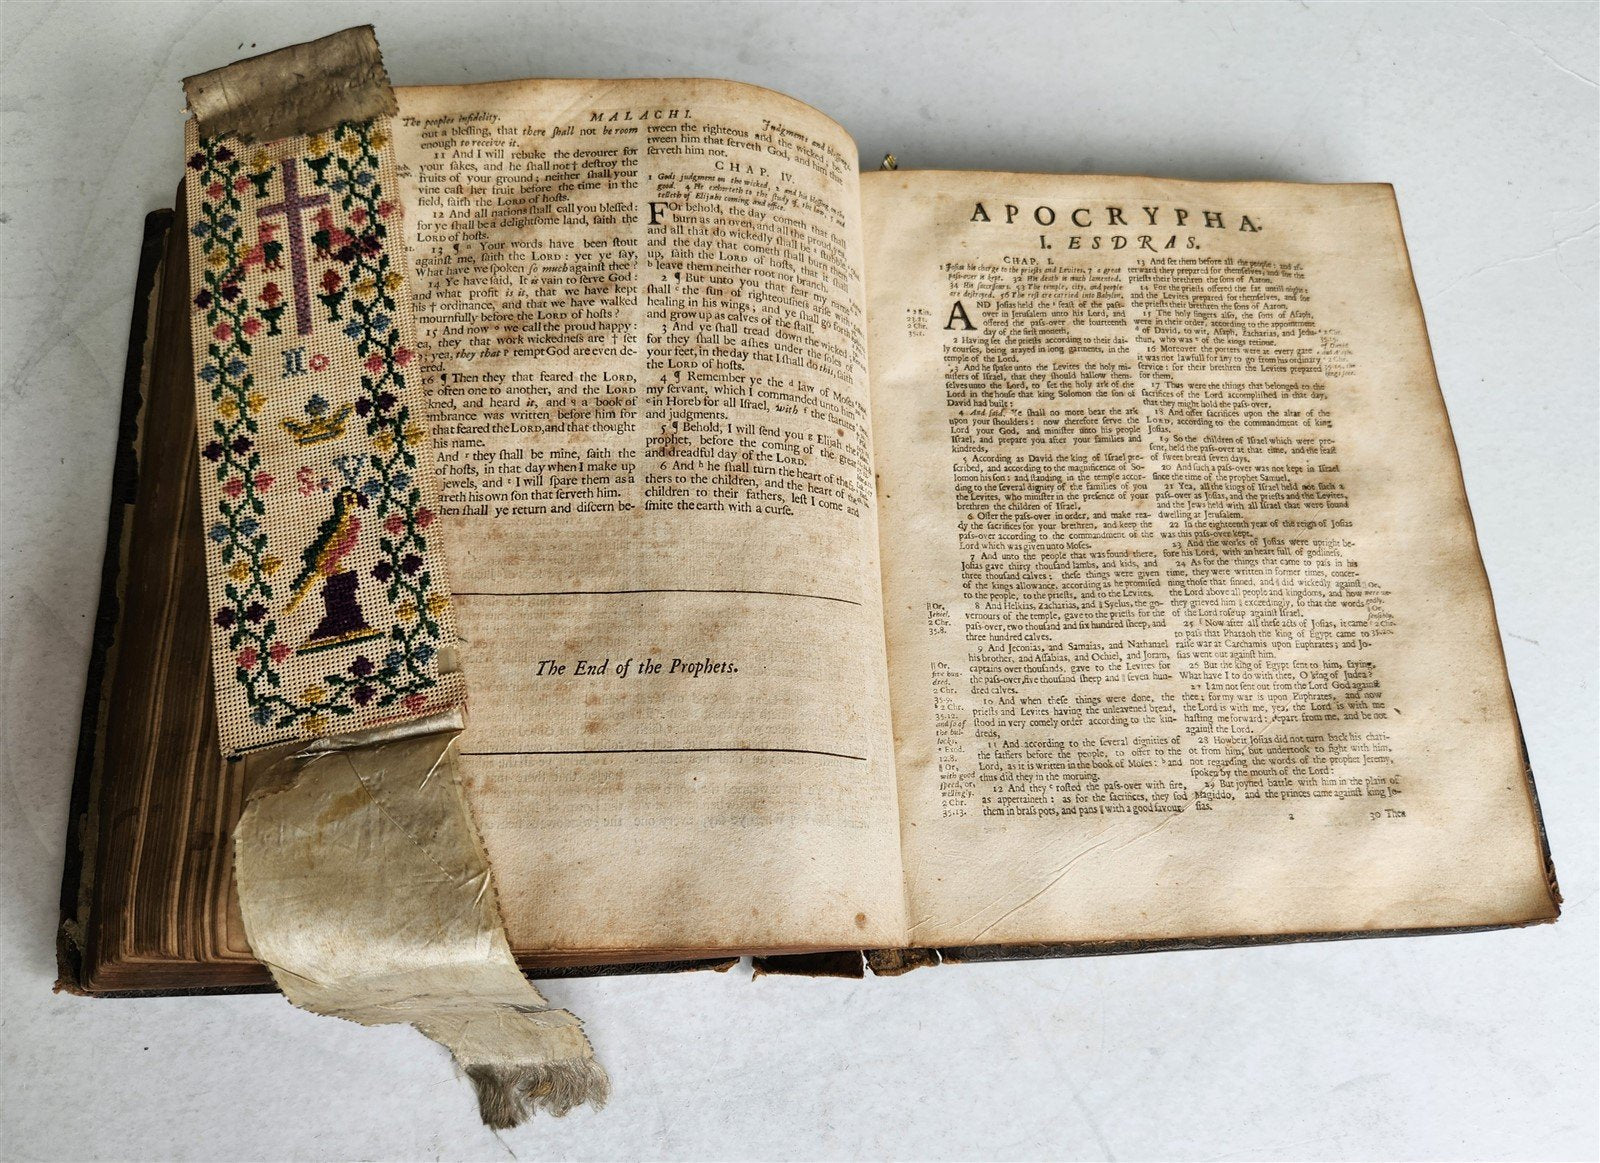 The peoples infidelity.
MALACHI.
Judgment, and blessings.
out a blessing, that there shall not be room
enough to receive it.
11 And I will rebuke the devourer for
your sakes, and he shall not † destroy the
fruits of your ground; neither shall your
vine cast her fruit before the time in the
field, saith the LORD of hosts.
12 And all nations shall call you blessed:
for ye shall be a delightsome land, saith the
LORD of hosts.
13 ¶ Your words have been stout
against me, saith the LORD: yet ye say,
What have we spoken so much against thee?
14 Ye have said, It is vain to serve God:
and what profit is it, that we have kept
his † ordinance, and that we have walked
mournfully before the LORD of hosts?
15 And now we call the proud happy:
ea, they that work wickedness are † set
; yea, they that tempt God are even de-
ered.
16 ¶ Then they that feared the LORD,
e often one to another, and the LORD
kned, and heard it, and a book of
mbrance was written before him for
that feared the LORD, and that thought
his name.
And they shall be mine, saith the
of hosts, in that day when I make up
jewels, and I will spare them as a
areth his own son that serveth him.
hen shall ye return and discern be-
tween the righteous and the wicked, be-
tween him that serveth God, and him that
serveth him not.
CHAP. IV.
1 Gods judgment on the wicked, 2 and his blessing on the
good. 4 He exhorteth to the study of the law, 5 and
telleth of Elijahs coming and office.
FOr behold, the day cometh that shall
burn as an oven, and all the proud, yea,
and all that do wickedly shall be stubble,
and the day that cometh shall burn them
up, saith the LORD of hosts, that it shall
leave them neither root nor branch.
2 ¶ But unto you that fear my name,
shall the sun of righteousness arise with
healing in his wings; and ye shall go forth
and grow up as calves of the stall.
3 And ye shall tread down the wicked;
for they shall be ashes under the soles of
your feet, in the day that I shall do this, saith
the LORD of hosts.
4 ¶ Remember ye the law of Moses
my servant, which I commanded unto him
in Horeb for all Israel, with the statutes
and judgments.
5 ¶ Behold, I will send you Elijah the
prophet, before the coming of the great
and dreadful day of the LORD.
6 And he shall turn the heart of the fa-
thers to the children, and the heart of the
children to their fathers, lest I come and
smite the earth with a curse.
The End of the Prophets.
APOCRYPHA.
I. ESDRAS.
CHAP. I.
1 Josias his charge to the priests and Levites. 7 a great
pass-over is kept. 32 His death is much lamented.
34 His successours. 53 The temple, city, and people
are destroyed. 56 The rest are carried into Babylon.
AND Josias held the feast of the pass-
over in Jerusalem unto his Lord, and
offered the pass-over the fourteenth
day of the first moneth,
2 Having set the priests according to their dai-
ly courses, being arayed in long garments, in the
temple of the Lord.
3 And he spake unto the Levites the holy mi-
nisters of Israel, that they should hallow them-
selves unto the Lord, to set the holy ark of the
Lord in the house that king Solomon the son of
David had built:
4 And said, Ye shall no more bear the ark
upon your shoulders: now therefore serve the
Lord your God, and minister unto his people
Israel, and prepare you after your families and
kindreds,
5 According as David the king of Israel pre-
scribed, and according to the magnificence of So-
lomon his son: and standing in the temple accor-
ding to the several dignity of the families of you
the Levites, who minister in the presence of your
brethren the children of Israel,
6 Offer the pass-over in order, and make rea-
dy the sacrifices for your brethren, and keep the
pass-over according to the commandment of the
Lord which was given unto Moses.
7 And unto the people that was found there,
Josias gave thirty thousand lambs, and kids, and
three thousand calves: these things were given
of the kings allowance, according as he promised
to the people, to the priests, and to the Levites.
8 And Helkias, Zacharias, and Syelus, the go-
vernours of the temple, gave to the priests for the
pass-over, two thousand and six hundred sheep, and
three hundred calves.
9 And Jeconias, and Samaias, and Nathanael
his brother, and Assabias, and Ochiel, and Joram,
captains over thousands, gave to the Levites for
the pass-over, five thousand sheep and seven hun-
dred calves.
10 And when these things were done, the
priests and Levites having the unleavened bread,
stood in very comely order according to the kin-
dreds,
11 And according to the several dignities of
the fathers before the people, to offer to the
Lord, as it is written in the book of Moses: and
thus did they in the morning.
12 And they rosted the pass-over with fire,
as appertaineth: as for the sacrifices, they sod
them in brass pots, and pans with a good savour,
13 And set them before all the people: and af-
terward they prepared for themselves, and for the
priests their brethren the sons of Aaron.
14 For the priests offered the fat untill night:
and the Levites prepared for themselves, and for
the priests their brethren the sons of Aaron.
15 The holy singers also, the sons of Asaph,
were in their order, according to the appointment
of David, to wit, Asaph, Zacharias, and Jedu-
thun, who was of the kings retinue.
16 Moreover the porters were at every gate
it was not lawfull for any to go from his ordinary
service: for their brethren the Levites prepared
for them.
17 Thus were the things that belonged to the
sacrifices of the Lord accomplished in that day,
that they might hold the pass-over,
18 And offer sacrifices upon the altar of the
Lord, according to the commandment of king
Josias.
19 So the children of Israel which were pre-
sent, held the pass-over at that time, and the feast
of sweet bread seven days.
20 And such a pass-over was not kept in Israel
since the time of the prophet Samuel.
21 Yea, all the kings of Israel held not such a
pass-over as Josias, and the priests and the Levites,
and the Jews held with all Israel that were found
dwelling at Jerusalem.
22 In the eighteenth year of the reign of Josias
was this pass-over kept.
23 And the works of Josias were upright be-
fore his Lord, with an heart full of godliness.
24 As for the things that came to pass in his
time, they were written in former times, concer-
ning those that sinned, and did wickedly against
the Lord above all people and kingdoms, and how
they grieved him exceedingly, so that the words
of the Lord rose up against Israel.
25 Now after all these acts of Josias, it came
to pass that Pharaoh the king of Egypt came to
raise war at Carchamis upon Euphrates; and Jo-
sias went out against him.
26 But the king of Egypt sent to him, saying,
What have I to do with thee, O king of Judea?
27 I am not sent out from the Lord God against
thee; for my war is upon Euphrates, and now
the Lord is with me, yea, the Lord is with me
hasting me forward: depart from me, and be not
against the Lord.
28 Howbeit Josias did not turn back his chari-
ot from him, but undertook to fight with him,
not regarding the words of the prophet Jeremy,
spoken by the mouth of the Lord:
29 But joyned battle with him in the plain of
Magiddo, and the princes came against king Jo-
sias.
2
30 Then